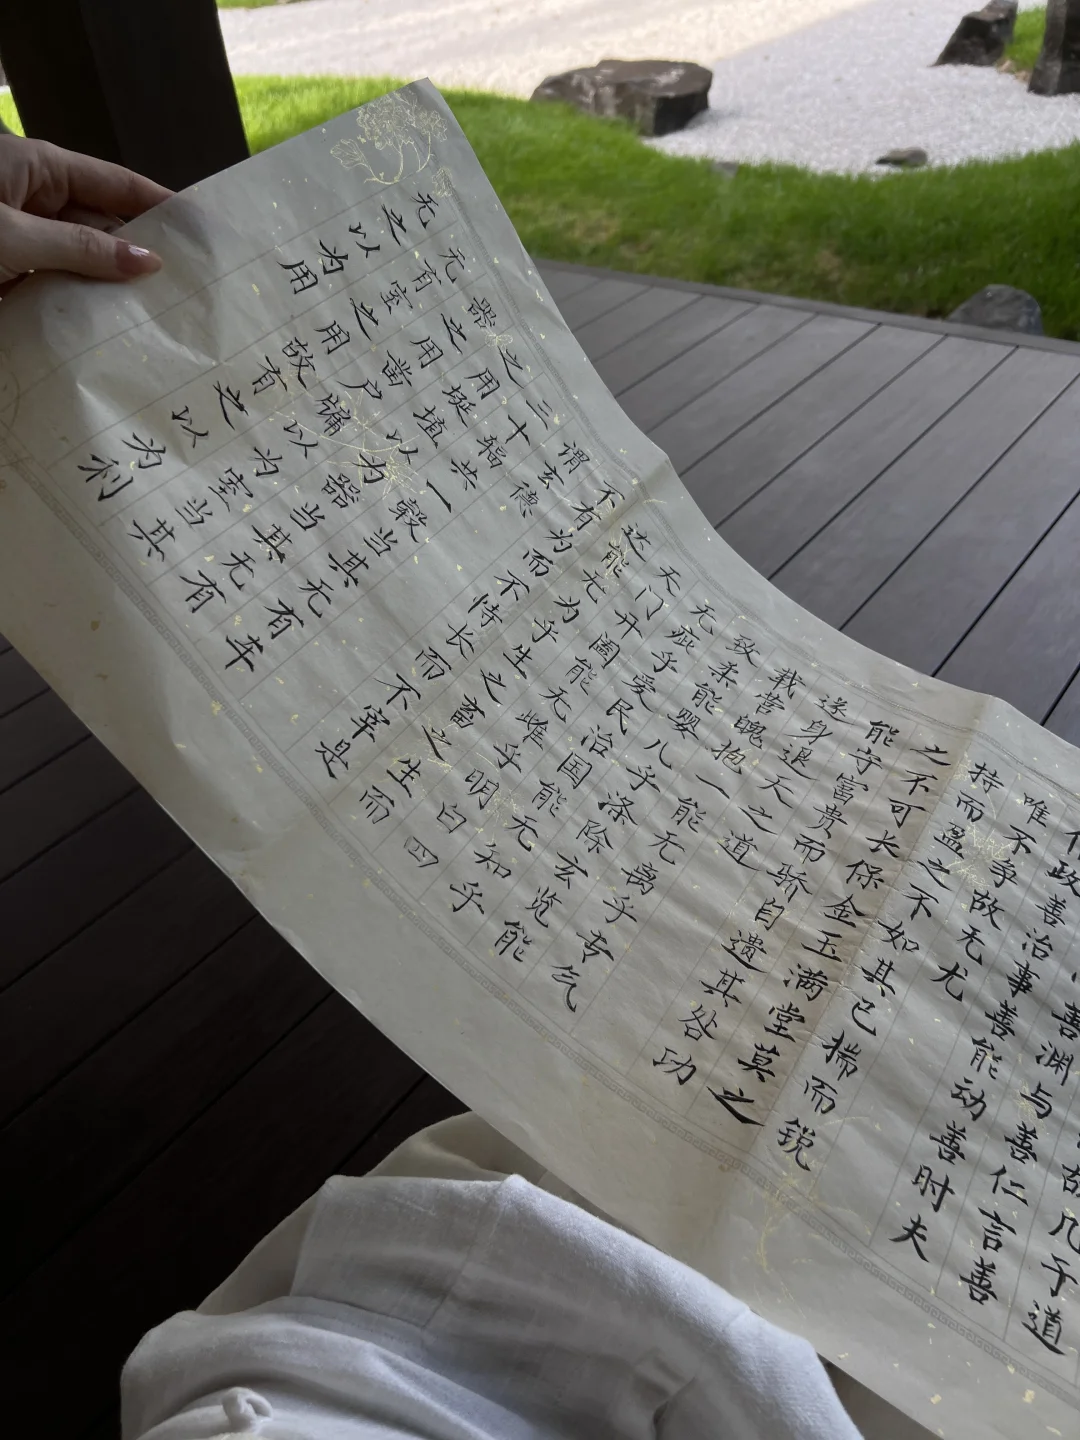 故几于道
善渊与善仁言善
政善治事善能动善时夫
唯不争故无尤
持而盈之不如其已揣而锐
之不可长保金玉满堂莫之
能守富贵而骄自遗其咎功
遂身退天之道
载营魄抱一能无离乎专气
致柔能婴儿乎涤除玄览能
无疵乎爱民治国能无知乎
天门开阖能无雌乎明白四
达能无为乎生之畜之生而
不有为而不恃长而不宰是
谓玄德
三十辐共一毂当其无有车
之用埏埴以为器当其无有
器之用凿户牖以为室当其
无有室之用故有之以为利
无之以为用